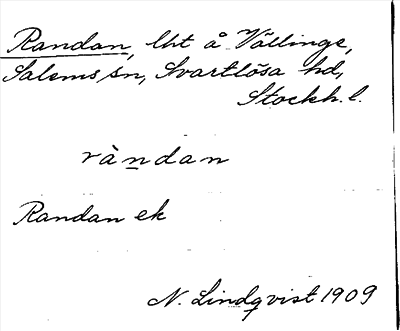 Randan, lht å Vällinge,
Salems sn, Svartlösa hd,
Stockh. l.
ràndan
Randan ek
N. Lindqvist 1909